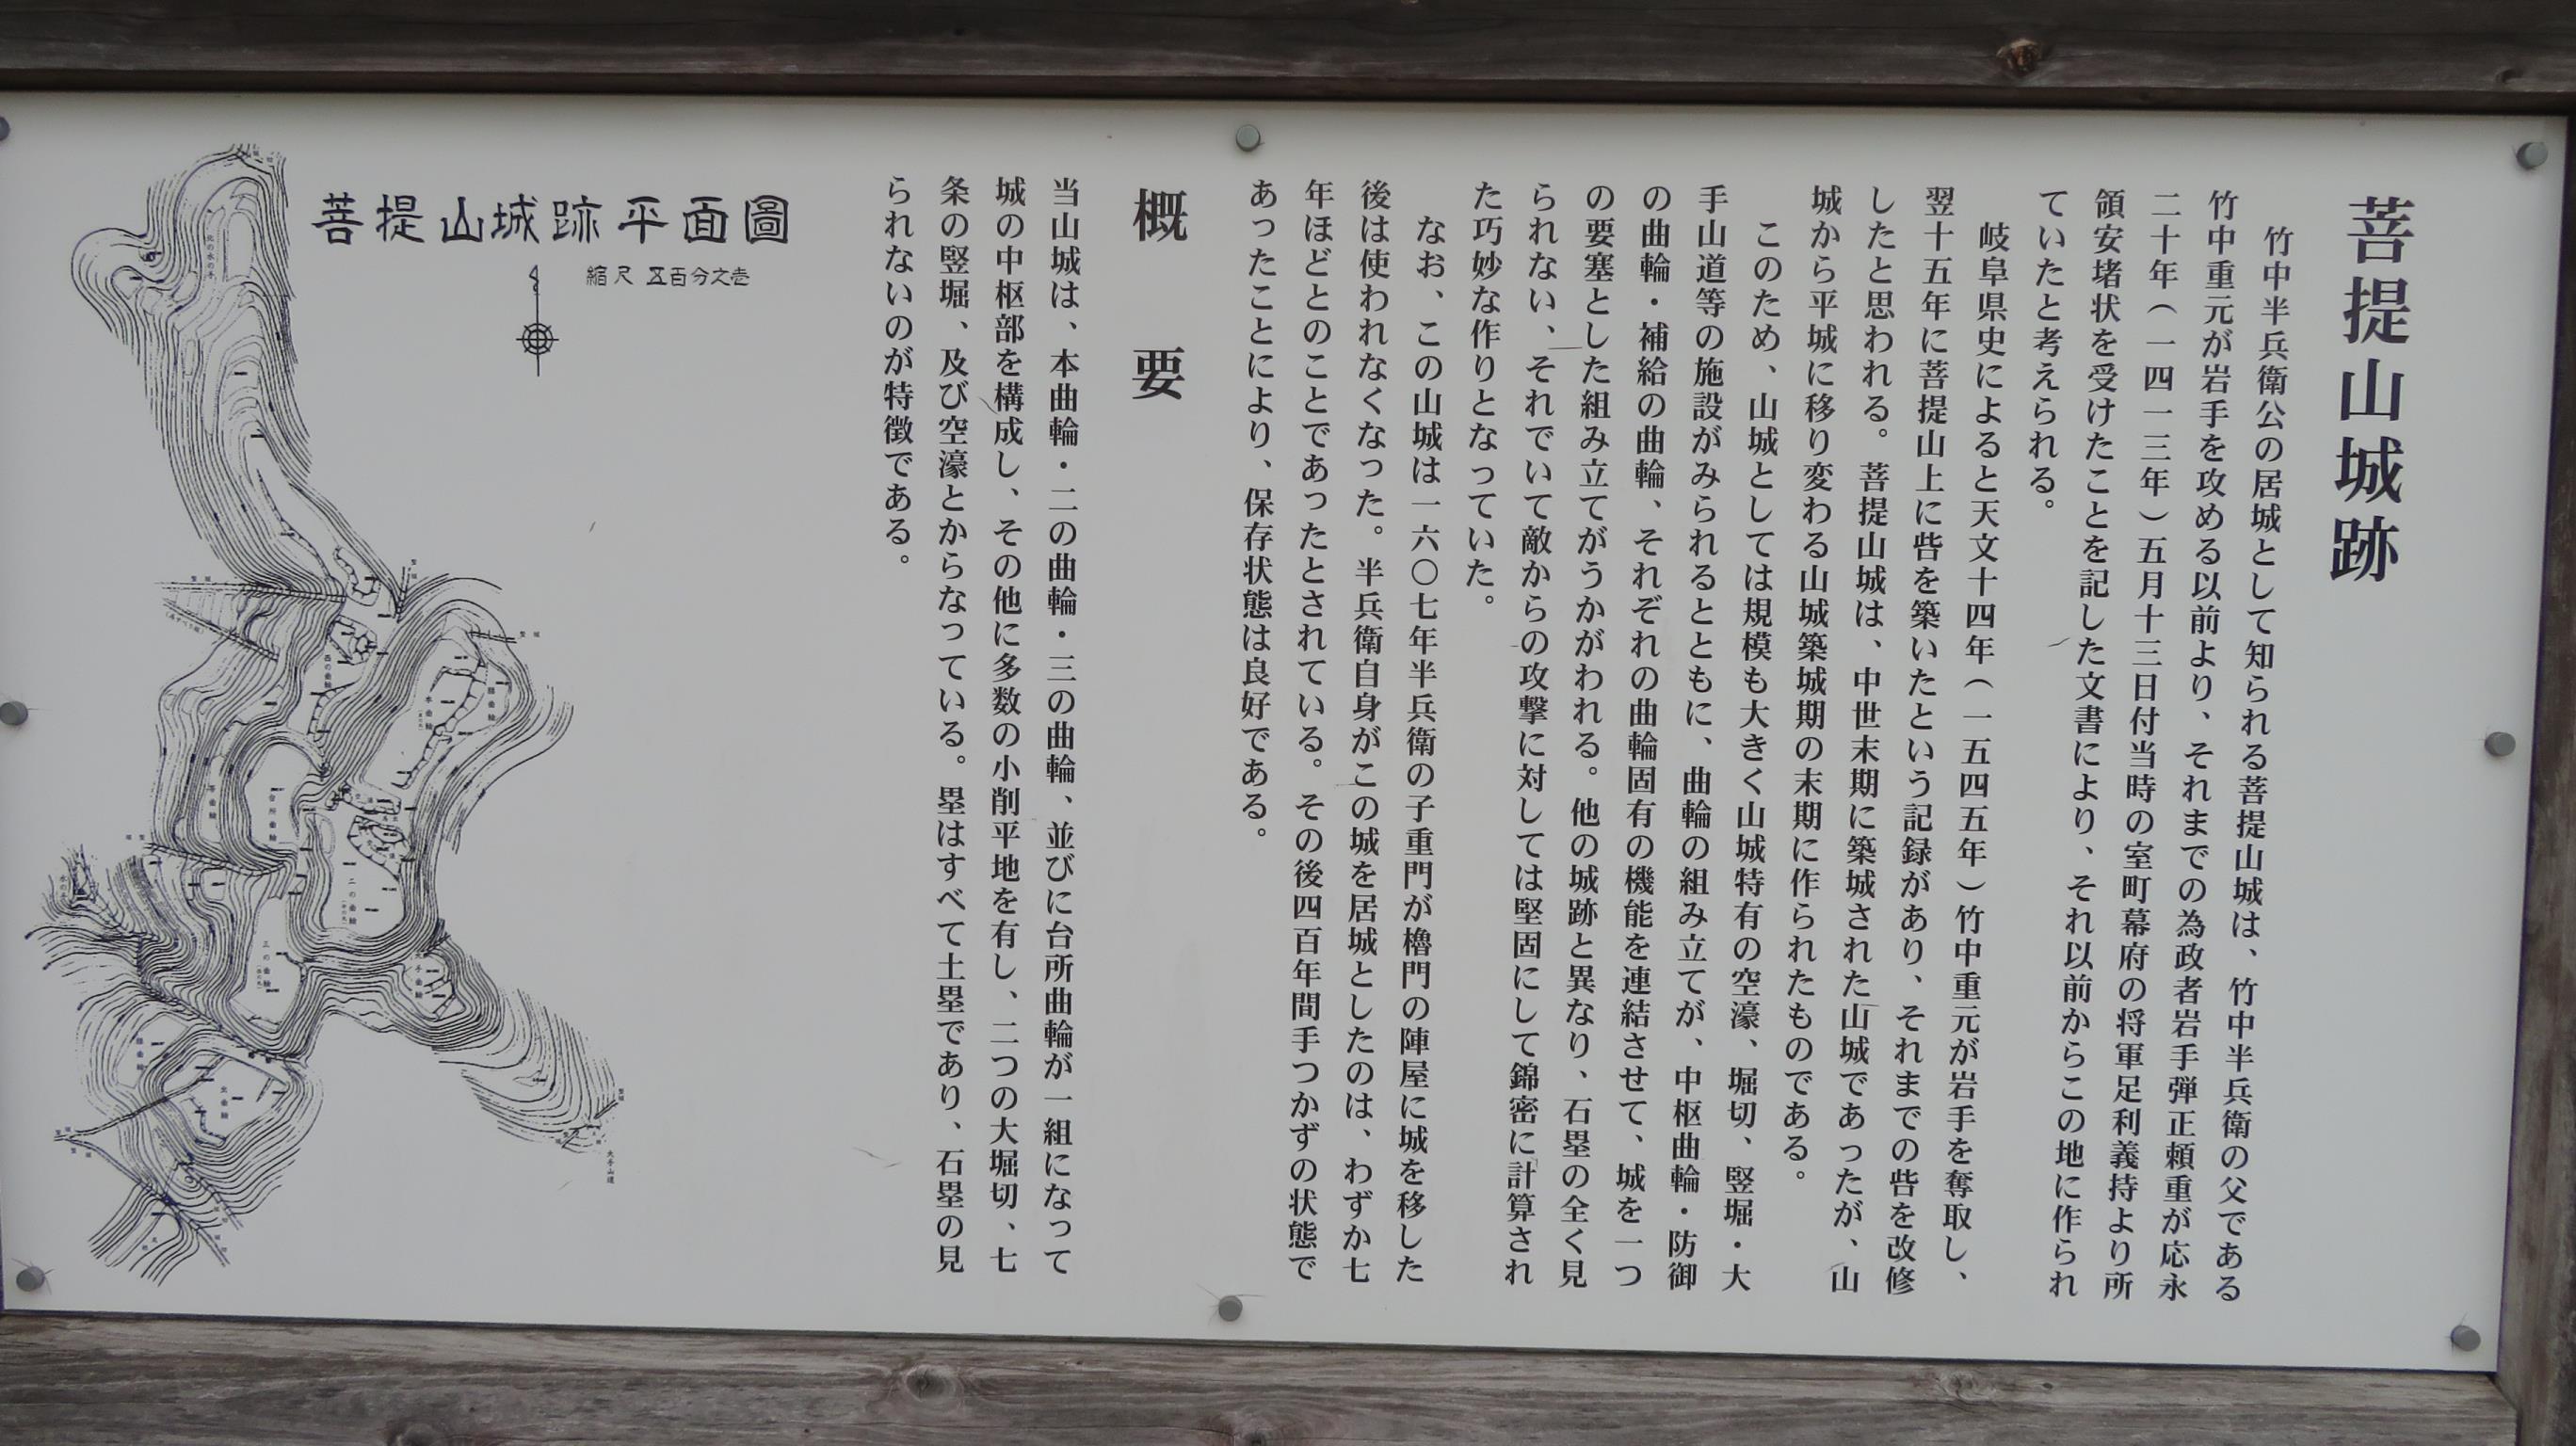 菩提山城跡
竹中半兵衛公の居城として知られる菩提山城は、竹中半兵衛の父である
竹中重元が岩手を攻める以前より、それまでの為政者岩手弾正頼重が応永
二十年（一四一三年）五月十三日付当時の室町幕府の将軍足利義持より所
領安堵状を受けたことを記した文書により、それ以前からこの地に作られ
ていたと考えられる。
岐阜県史によると天文十四年（一五四五年）竹中重元が岩手を奪取し、
翌十五年に菩提山上に砦を築いたという記録があり、それまでの砦を改修
したと思われる。菩提山城は、中世末期に築城された山城であったが、山
城から平城に移り変わる山城築城期の末期に作られたものである。
このため、山城としては規模も大きく山城特有の空濠、堀切、竪堀・大
手山道等の施設がみられるとともに、曲輪の組み立てが、中枢曲輪・防御
の曲輪・補給の曲輪、それぞれの曲輪固有の機能を連結させて、城を一つ
の要塞とした組み立てがうかがわれる。他の城跡と異なり、石塁の全く見
られない、それでいて敵からの攻撃に対しては堅固にして錦密に計算され
た巧妙な作りとなっていた。
なお、この山城は一六〇七年半兵衛の子重門が櫓門の陣屋に城を移した
後は使われなくなった。半兵衛自身がこの城を居城としたのは、わずか七
年ほどとのことであったとされている。その後四百年間手つかずの状態で
あったことにより、保存状態は良好である。
概要
当山城は、本曲輪・二の曲輪・三の曲輪、並びに台所曲輪が一組になって
城の中枢部を構成し、その他に多数の小削平地を有し、二つの大堀切、七
条の竪堀、及び空濠とからなっている。塁はすべて土塁であり、石塁の見
られないのが特徴である。
菩提山城跡平面圖
縮尺 五百分之壱
本曲輪
西の曲輪
台所曲輪
二の曲輪
三の曲輪
大手曲輪
大手山道